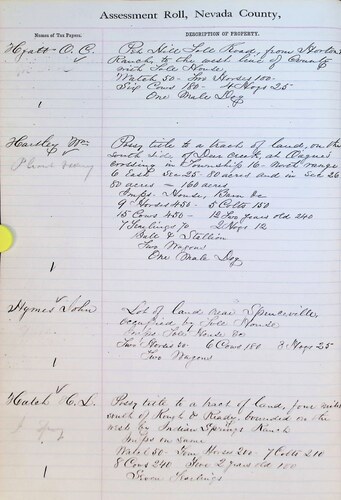 Assessment Roll, Nevada County,
Names of Tax Payers.
DESCRIPTION OF PROPERTY.
Hyatt O. C.
Pen Hill Tole Road, from Horton
Ranch, to the west line of County
with Tole House
1 Watch 50 - Two Horses 100 -
Six Cows 180 - 4 Hogs 25
One Male Dog
1
Hartley Wm
Possy title to a track of land, on the
south side of Dear Creek, at
crossing in Township 16 North range
6 East Sec 25 80 acres and in Sec 26
80 acres — 160 acres
Imps. House, Barn &c
9 Horses 450 - 5 Colts 150
15 Cows 450 - 12 Two years old 240
7 Yearlings 70 2 Hogs 12
Bull & Stallion
Two Wagons
One Male Dog
1
Hymes John
Lot of land near Spenceville
occupied by Tole House
Imps Tole House &c
Two Horses 6 Cows 180 8 Hogs 25
Two Wagons
1
Hatch H. L.
Possy title to a tract of land, four miles
south of Rough & Ready, bounded on the
west by Indian Springs Ranch
Imps on same
Watch 50 Four Horses 200 7 Colts 210
8 Cows 240 Five 2 years old 100
Seven Yearlings
1